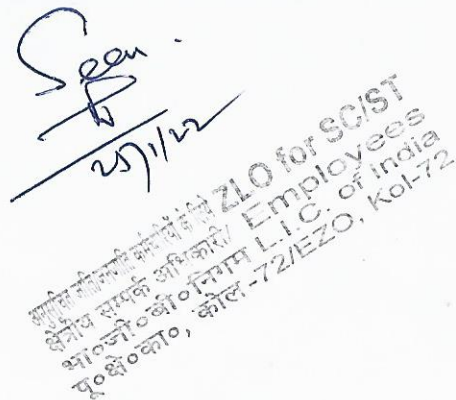 Seen.
25/1/22
अनुसूचित जाति/जनजाति कर्मचारियों के लिये ZLO for SC/ST
क्षेत्रीय सम्पर्क अधिकारी/ Employees
भा०जी०बी०निगम L.I.C. of india
पू०क्षे०का०, कोल-72/EZO, Kol-72